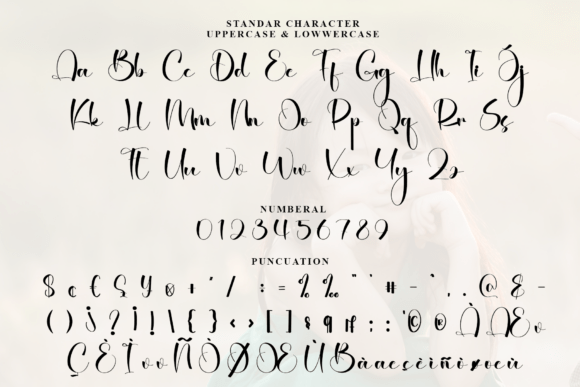 STANDAR CHARACTER
UPPERCASE & LOWWERCASE
Aa Bb Cc Dd Ee Ff Gg Hh Ii Jj
Kk Ll Mm Nn Oo Pp Qq Rr Ss
Tt Uu Vv Ww Xx Yy Zz
NUMBERAL
0123456789
PUNCUATION
$ ¢ £ Ş ¥ ø + * / : = % ‰ " ' # - ` , . @ & -
( ) ¿ ? ¡ ! \ { } < > [ ] § ¶ : ; ' © ® À Æ
Ç È Ì Ñ Ò Ø Œ Ù ß à æ ç è ì ñ ò ø œ ù